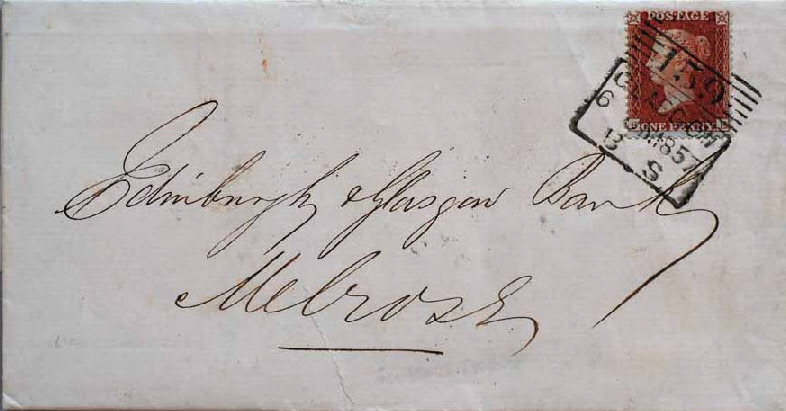 POSTAGE
159
GLASGOW
6 1857
13 S
ONE PENNY
Edinburgh & Glasgow Bank
Melrose